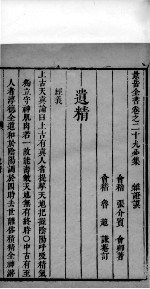 景岳全書卷之二十九必集　雜證謨
會稽　張介賓　會卿著
會稽　魯超　謙菴訂
遺精
經義
上古天真論曰上古有真人者提挈天地把握陰陽呼吸精氣
獨立守神肌肉若一故能壽敝天地無有終時○中古有至
人者淳德全道和於陰陽調於四時去世離俗積精全神游